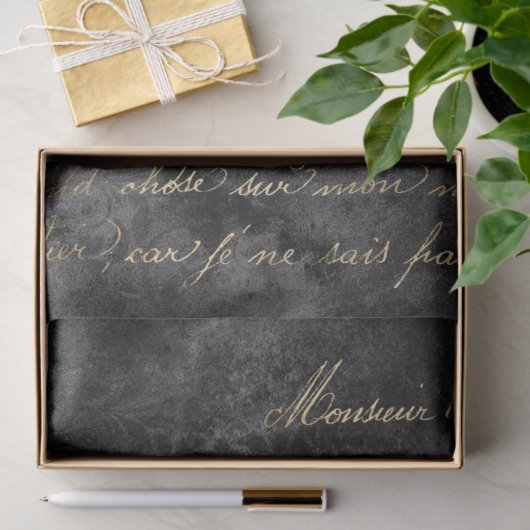 nd chose sur mon m
tier, car je ne sais pa
Monsieur